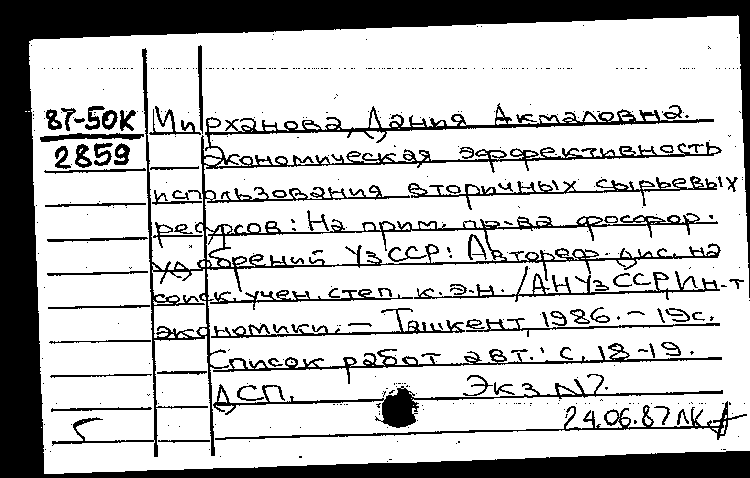 87-50К Мирханова, Дания Акмаловна.
2859 Экономическая эффективность
использования вторичных сырьевых
ресурсов: На прим. пр-ва фосфор.
удобрений УзССР: Автореф. дис. на
соиск. учен. степ. к.э.н. /АН УзССР, Ин-т
экономики. — Ташкент, 1986. — 19с.
Список работ авт.: с. 18-19.
ДСП. Экз. N7.
24.06.87 ЛК